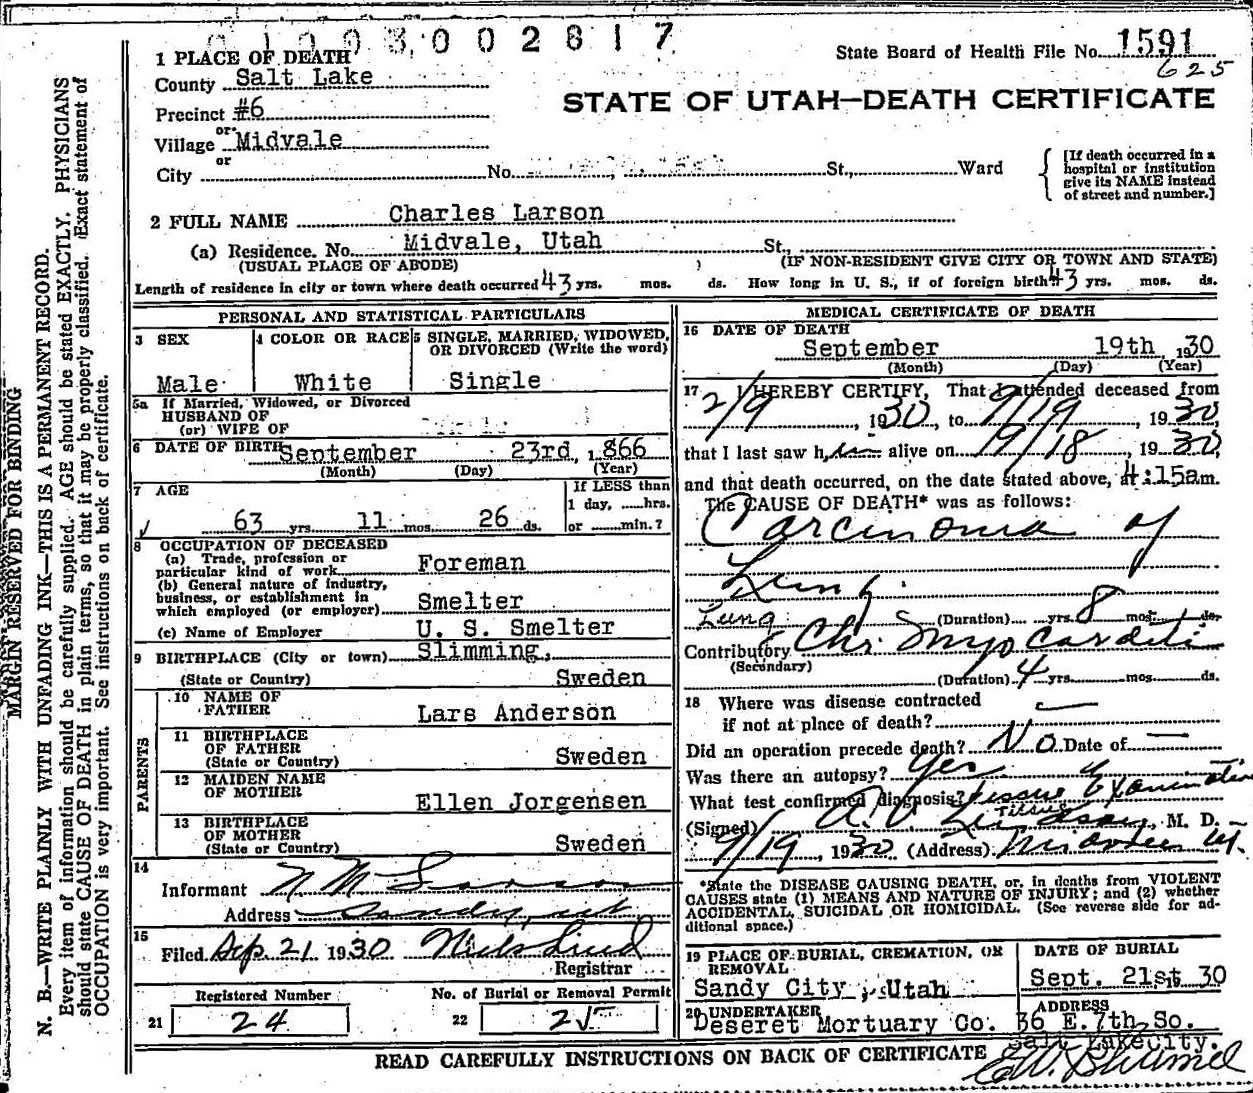 0 1 0 0 3 0 0 2 8 1 7
State Board of Health File No. 1591
625
STATE OF UTAH—DEATH CERTIFICATE
1 PLACE OF DEATH
County Salt Lake
Precinct #6
or
Village Midvale
or
City No. St., Ward
[If death occurred in a hospital or institution give its NAME instead of street and number.]
2 FULL NAME Charles Larson
(a) Residence. No. Midvale, Utah St.,
(USUAL PLACE OF ABODE) (IF NON-RESIDENT GIVE CITY OR TOWN AND STATE)
Length of residence in city or town where death occurred 43 yrs. mos. ds. How long in U. S., if of foreign birth 43 yrs. mos. ds.
PERSONAL AND STATISTICAL PARTICULARS
3 SEX
Male
4 COLOR OR RACE
White
5 SINGLE, MARRIED, WIDOWED, OR DIVORCED (Write the word)
Single
5a If Married, Widowed, or Divorced
HUSBAND OF
(or) WIFE OF
6 DATE OF BIRTH September 23rd, 1866
(Month) (Day) (Year)
7 AGE
63 yrs. 11 mos. 26 ds.
If LESS than
1 day, hrs.
or min.?
8 OCCUPATION OF DECEASED
(a) Trade, profession or
particular kind of work Foreman
(b) General nature of industry,
business, or establishment in
which employed (or employer) Smelter
(c) Name of Employer U. S. Smelter
9 BIRTHPLACE (City or town) Slimming,
(State or Country) Sweden
PARENTS
10 NAME OF
FATHER Lars Anderson
11 BIRTHPLACE
OF FATHER
(State or Country) Sweden
12 MAIDEN NAME
OF MOTHER Ellen Jorgensen
13 BIRTHPLACE
OF MOTHER
(State or Country) Sweden
14
Informant N M Larson
Address Sandy, Ut
15
Filed Sep. 21 1930 Niels Lind
Registrar
Registered Number
21 24
No. of Burial or Removal Permit
22 25
MEDICAL CERTIFICATE OF DEATH
16 DATE OF DEATH
September 19th 1930
(Month) (Day) (Year)
17 I HEREBY CERTIFY, That I attended deceased from
2/9, 1930, to 9/19, 1930,
that I last saw him alive on 9/18, 1930,
and that death occurred, on the date stated above, at 4:15am.
The CAUSE OF DEATH* was as follows:
Carcinoma of
Lung
Lung (Duration) yrs. 8 mos. ds.
Contributory Chr Myocarditi
(Secondary)
(Duration) 4 yrs. mos. ds.
18 Where was disease contracted
if not at place of death?
Did an operation precede death? No Date of —
Was there an autopsy? Yes
What test confirmed diagnosis? Tissue Examination
Tissue
(Signed) A.V. Lindsay, M. D.
9/19, 1930 (Address) Midvale Ut.
*State the DISEASE CAUSING DEATH, or, in deaths from VIOLENT
CAUSES state (1) MEANS AND NATURE OF INJURY; and (2) whether
ACCIDENTAL, SUICIDAL OR HOMICIDAL. (See reverse side for ad-
ditional space.)
19 PLACE OF BURIAL, CREMATION, OR
REMOVAL
Sandy City, Utah
DATE OF BURIAL
Sept. 21st 1930
20 UNDERTAKER
Deseret Mortuary Co.
ADDRESS
36 E. 7th So.
Salt Lake City.
READ CAREFULLY INSTRUCTIONS ON BACK OF CERTIFICATE
MARGIN RESERVED FOR BINDING
N. B.—WRITE PLAINLY WITH UNFADING INK—THIS IS A PERMANENT RECORD.
Every item of information should be carefully supplied. AGE should be stated EXACTLY. PHYSICIANS
should state CAUSE OF DEATH in plain terms, so that it may be properly classified. Exact statement of
OCCUPATION is very important. See instructions on back of certificate.